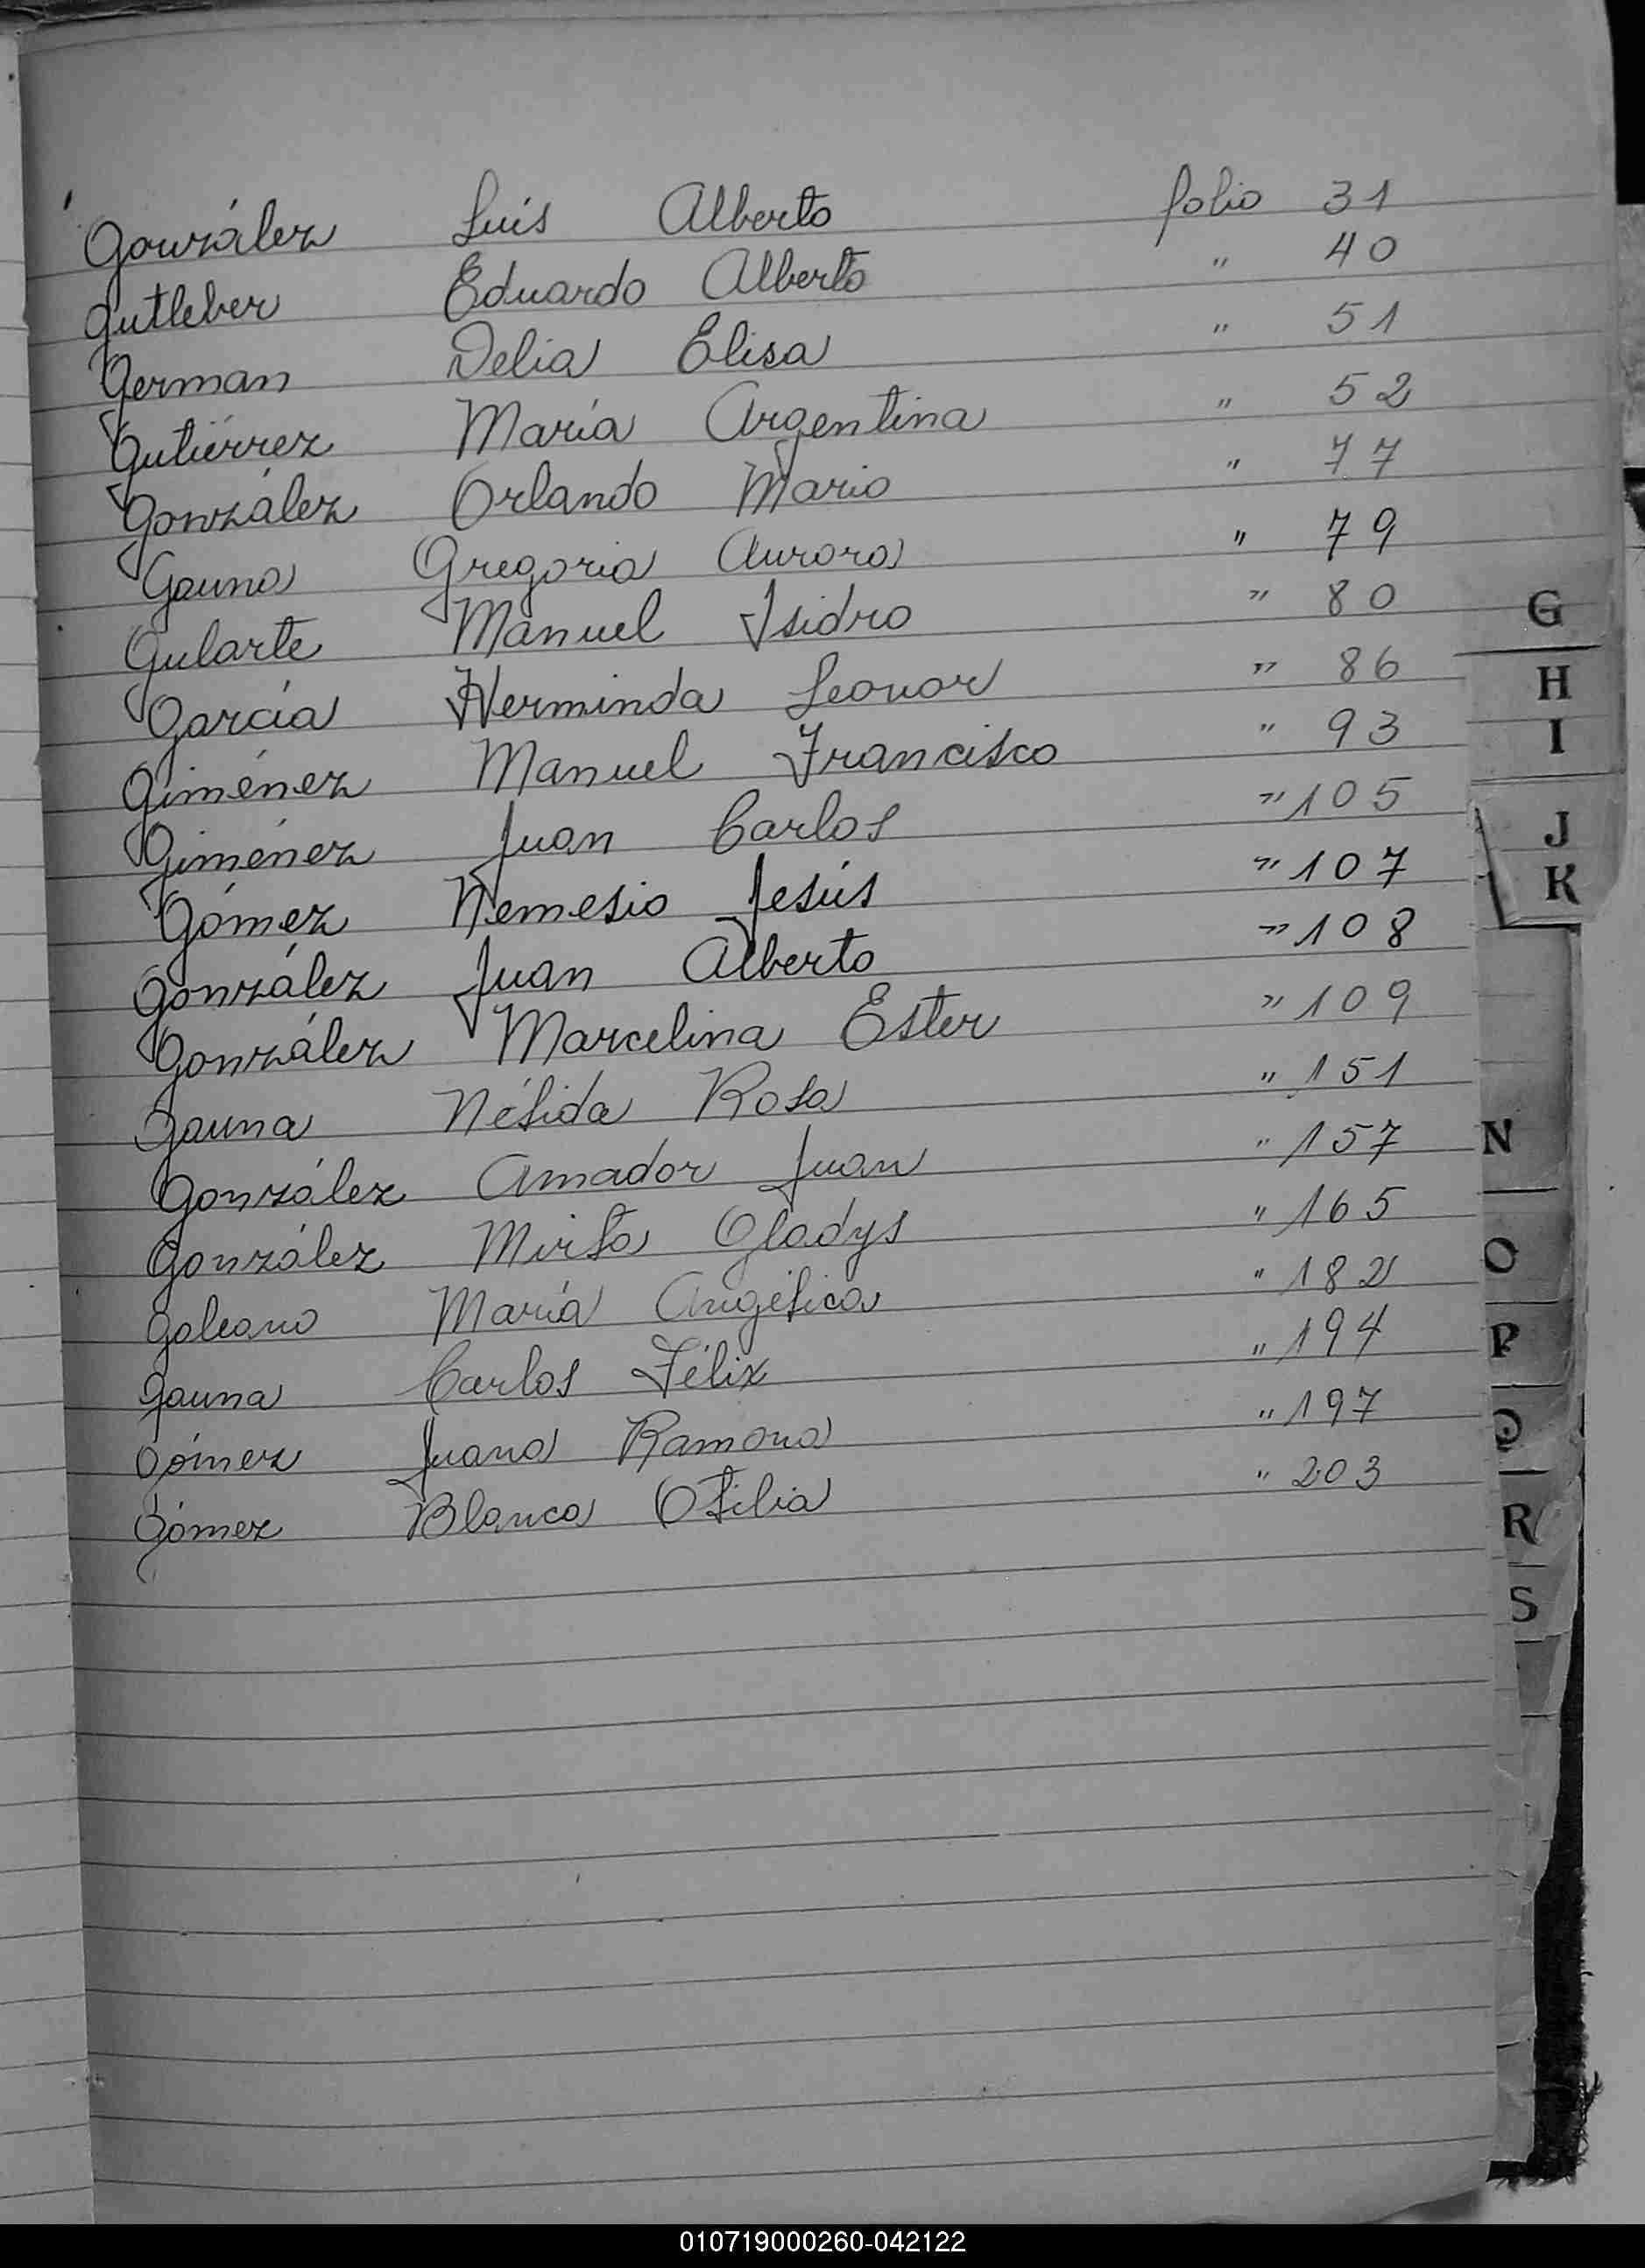 González Luis Alberto folio 31
Gutleber Eduardo Alberto " 40
German Delia Elisa " 51
Gutiérrez María Argentina " 52
González Orlando Mario " 77
Gauna Gregoria Aurora " 79
Gularte Manuel Isidro " 80
García Herminda Leonor " 86
Giménez Manuel Francisco " 93
Giménez Juan Carlos " 105
Gómez Nemesio Jesús " 107
González Juan Alberto " 108
González Marcelina Ester " 109
Gauna Nélida Rosa " 151
González Amador Juan " 157
González Mirta Gladys " 165
Galeano María Angélica " 182
Gauna Carlos Félix " 194
Gómez Juana Ramona " 197
Gómez Blanca Otilia " 203
G
H
I
J
K
N
O
P
Q
R
S
010719000260-042122